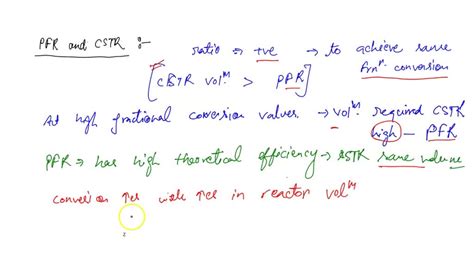 PFR and CSTR :-
ratio → +ve → to achieve same frnⁿ. conversion
[CSTR volᵐ > PFR]
At high fractional conversion values → volᵐ. required CSTR high – PFR
PFR → has high theoretical efficiency → CSTR same volume
Conversion ↑es with ↑es in reactor volᵐ